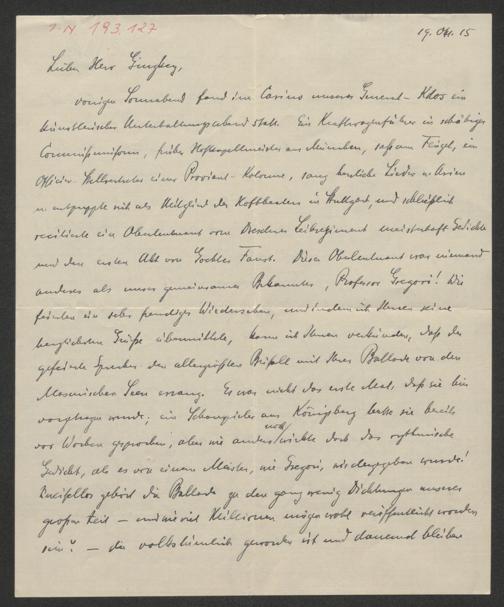 I. N 193.127
19. Okt. 15
Lieber Herr Ginzkey,
vorigen Sonnabend fand im Casino unseres General-Kdos ein
künstlerischer Unterhaltungsabend statt. Ein Kraftwagenführer in schäbiger
Commißuniform, früher Hofkapellmeister aus München, saß am Flügel, ein
Offizier-Stellvertreter einer Proviant-Kolonne, sang herrliche Lieder u. Arien
u. entpuppte sich als Mitglied des Hoftheaters in Stuttgart, und schließlich
recitierte ein Oberleutnant vom Dresdner Leibregiment meisterhaft Gedichte
und den ersten Akt von Goethes Faust. Dieser Oberleutnant war niemand
anderes als unser gemeinsamer Bekannter, Professor Gregori! Wir
feierten ein sehr freudiges Wiedersehen, und indem ich Ihnen seine
herzlichsten Grüße übermittele, kann ich Ihnen verkünden, daß der
gefeierte Sprecher den allergrößten Beifall mit Ihrer Ballade von den
Masurischen Seen errang. Es war nicht das erste Mal, daß sie hier
vorgetragen wurde; ein Schauspieler aus Königsberg hatte sie bereits
vor Wochen gesprochen, aber wie anders wirkte doch das rythmische
Gedicht, als es von einem Meister, wie Gregori, wiedergegeben wurde!
Zweifellos gehört die Ballade zu den ganz wenig Dichtungen unserer
großen Zeit – und wieviel Millionen mögen wohl veröffentlicht worden
sein? – die volkstümlich geworden ist und dauernd bleiben